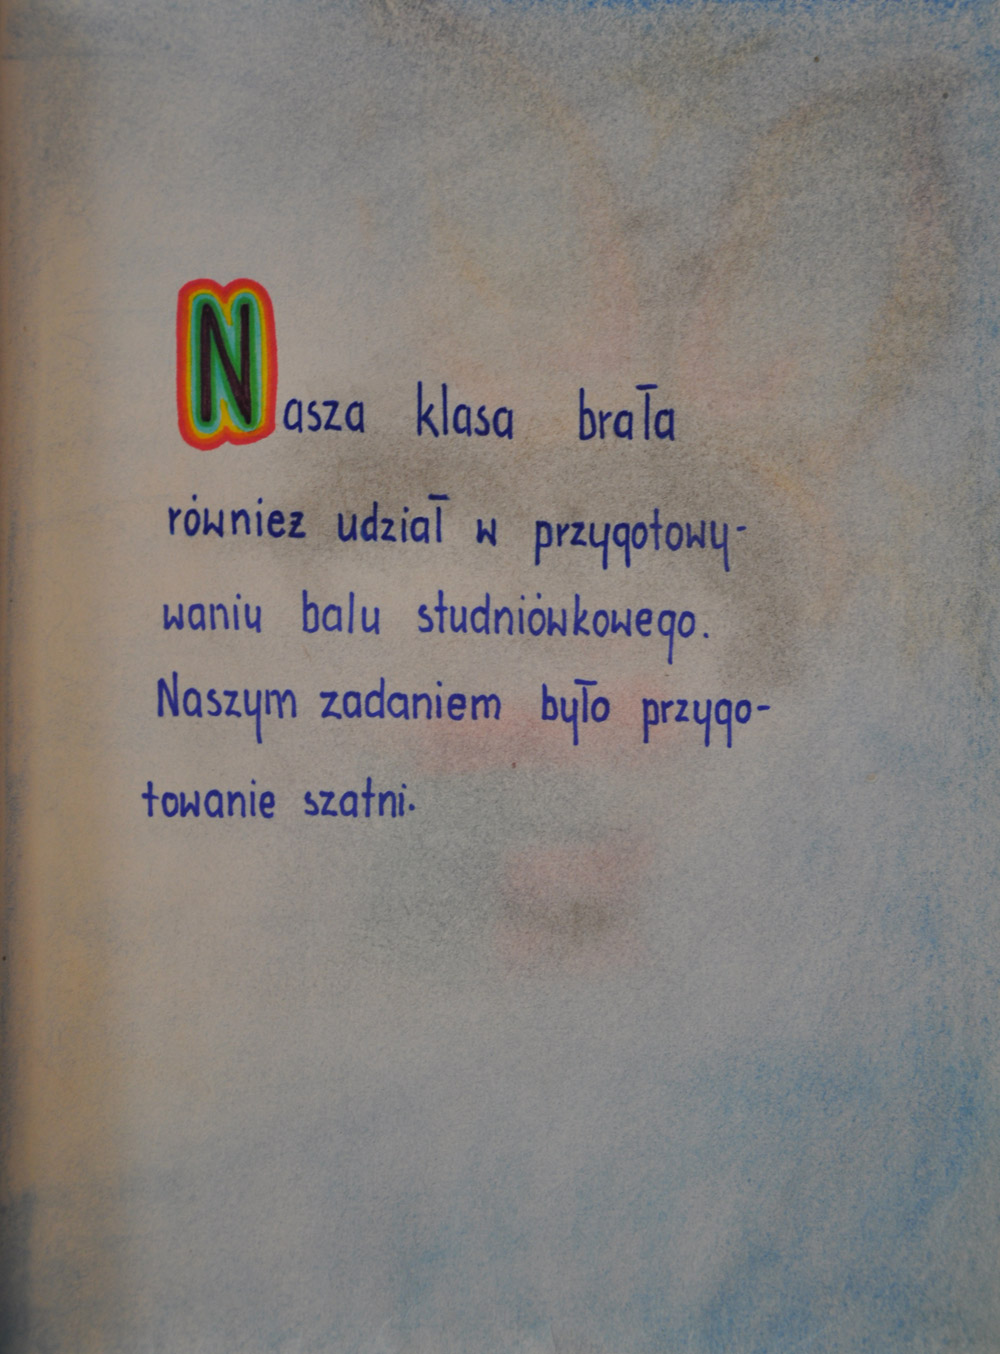 Nasza klasa brała
również udział w przygotowy-
waniu balu studniówkowego.
Naszym zadaniem było przygo-
towanie szatni.